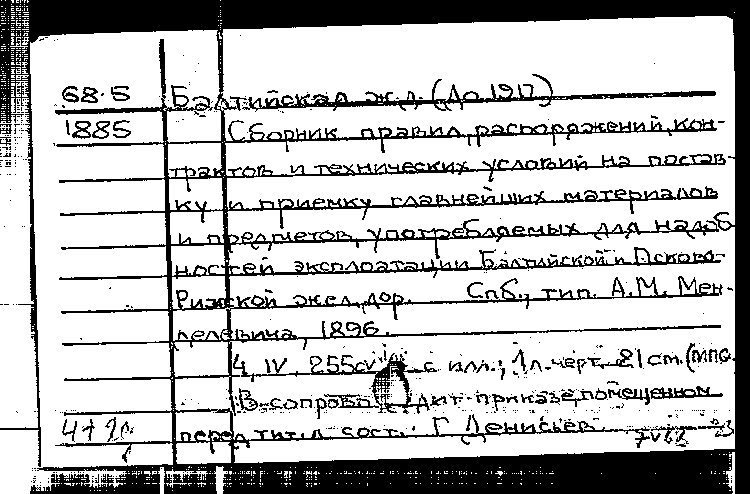 68.5 Балтийская ж.д. (До 1917)
1885 Сборник правил, распоряжений, кон-
трактов и технических условий на постав-
ку и приемку главнейших материалов
и предметов, употребляемых для надоб
ностей эксплоатации Балтийской и Псково-
Рижской жел. дор. Спб., тип. А.М. Мен-
делевича, 1896.
4, IV, 255 с илл.; 1 л. черт. 21 см. (МПС.
В сопрово дит. приказе, помещенном
перед тит. л сост.: Г Денисьев